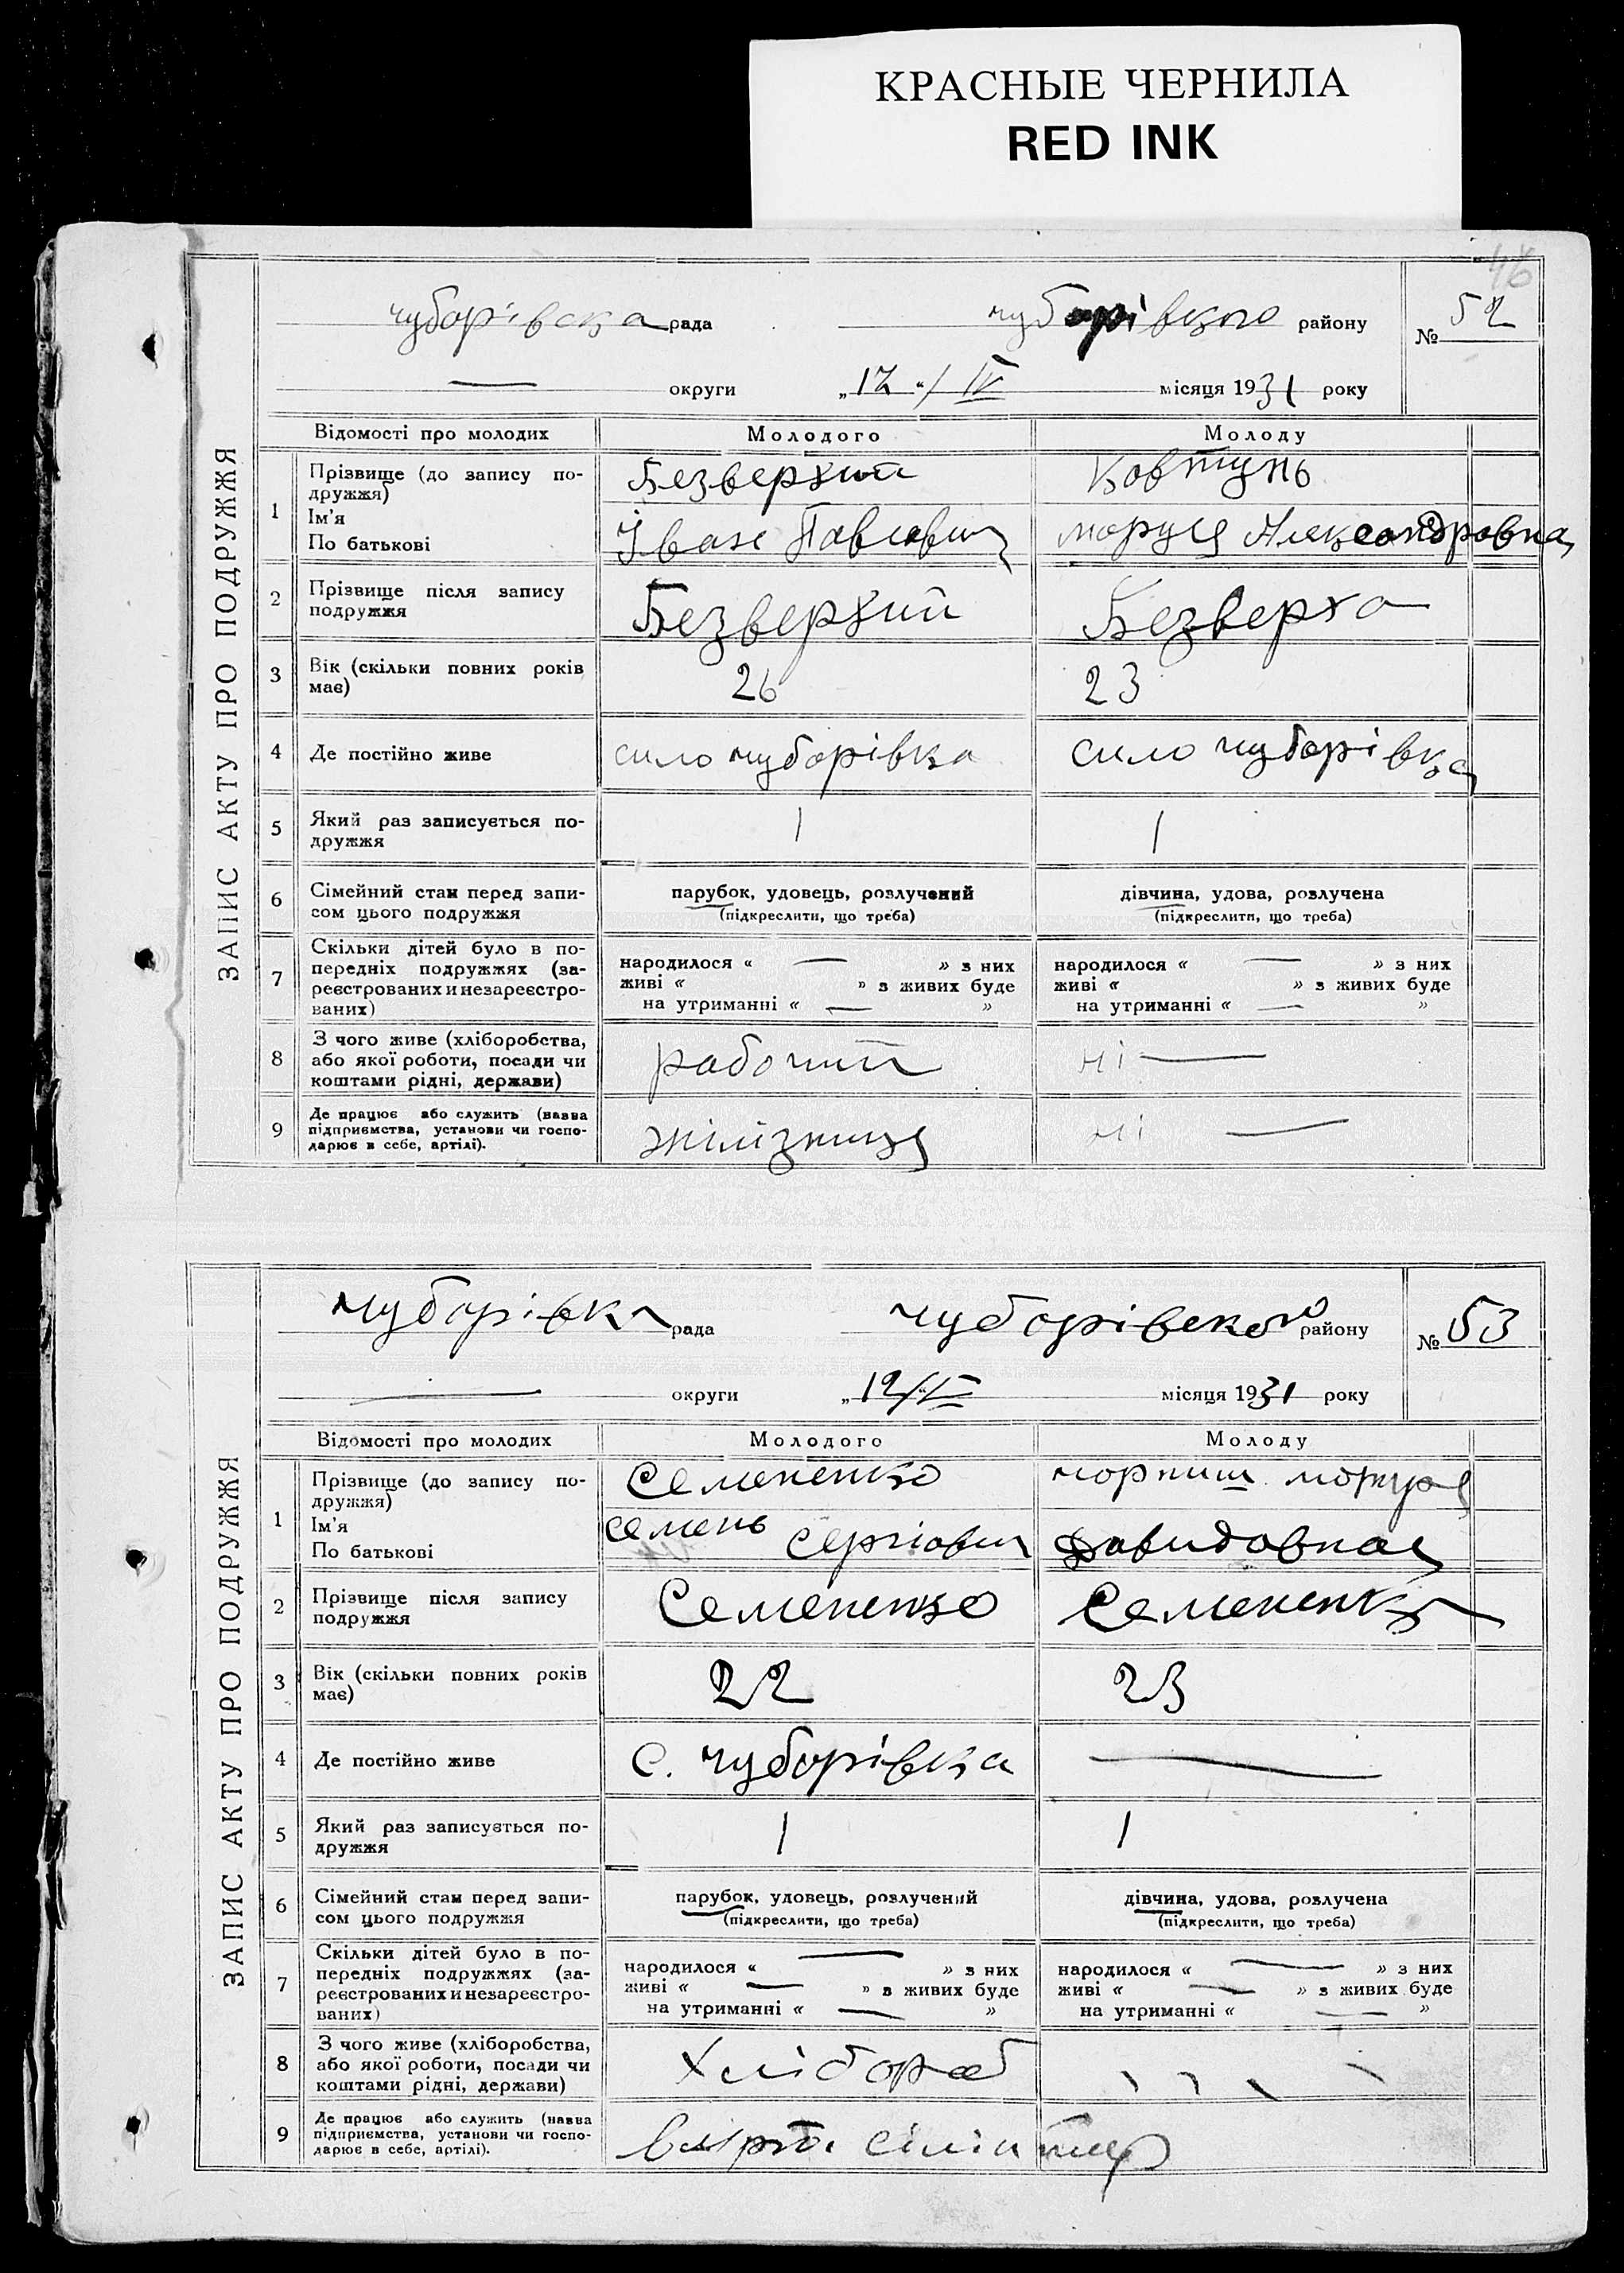 КРАСНЫЕ ЧЕРНИЛА
RED INK
46
ЗАПИС АКТУ ПРО ПОДРУЖЖЯ
чуборівска рада чуборівкого району № 52
— округи „12“/IV місяця 1931 року
Відомості про молодих Молодого Молоду
1 Прізвище (до запису по- Безверхий Ковтунь
дружжя)
Ім'я Іван Павлович моруся Александровна
По батькові
2 Прізвище після запису Безверхий Безверха
подружжя
3 Вік (скільки повних років 26 23
має)
4 Де постійно живе сило чуборівка сило чуборівка
5 Який раз записується по- 1 1
дружжя
6 Сімейний стан перед запи- парубок, удовець, розлучений дівчина, удова, розлучена
сом цього подружжя (підкреслити, що треба) (підкреслити, що треба)
7 Скільки дітей було в по- народилося « — » з них народилося « — » з них
передніх подружжях (за- живі « » з живих буде живі « » з живих буде
реєстрованих и незареєстро- на утриманні « — » на утриманні « — »
ваних)
8 З чого живе (хліборобства, рабочий ні —
або якої роботи, посади чи
коштами рідні, держави)
9 Де працює або служить (назва жілізниця ні —
підприємства, установи чи госпо-
дарює в себе, артілі).
ЗАПИС АКТУ ПРО ПОДРУЖЖЯ
чуборівка рада чуборівского району № 53
— округи „12/IV місяця 1931 року
Відомості про молодих Молодого Молоду
1 Прізвище (до запису по- Семененко
дружжя)
Ім'я семень Сергіович давидовная
По батькові
2 Прізвище після запису Семененко Семененко
подружжя
3 Вік (скільки повних років 22 23
має)
4 Де постійно живе с. чуборівка —
5 Який раз записується по- 1 1
дружжя
6 Сімейний стан перед запи- парубок, удовець, розлучений дівчина, удова, розлучена
сом цього подружжя (підкреслити, що треба) (підкреслити, що треба)
7 Скільки дітей було в по- народилося « — » з них народилося « — » з них
передніх подружжях (за- живі « — » з живих буде живі « — » з живих буде
реєстрованих и незареєстро- на утриманні « — » на утриманні « — »
ваних)
8 З чого живе (хліборобства, Хлібороб
або якої роботи, посади чи
коштами рідні, держави)
9 Де працює або служить (назва
підприємства, установи чи госпо-
дарює в себе, артілі).